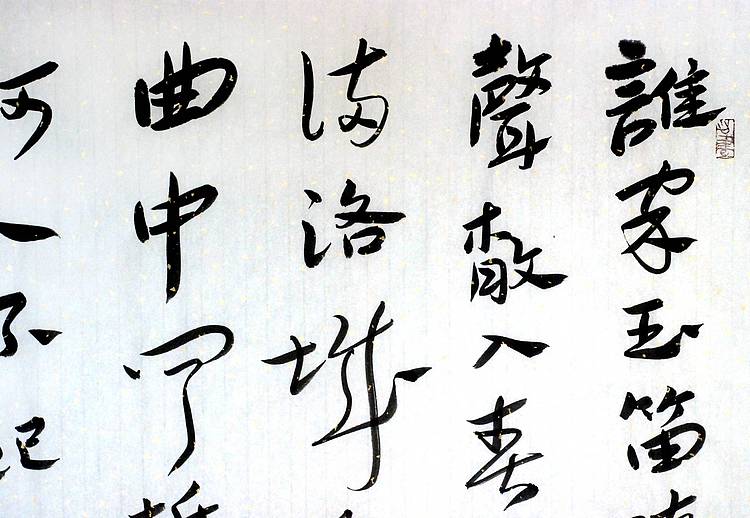 誰家玉笛
聲散入春
滿洛城
曲中聞折
何人不起